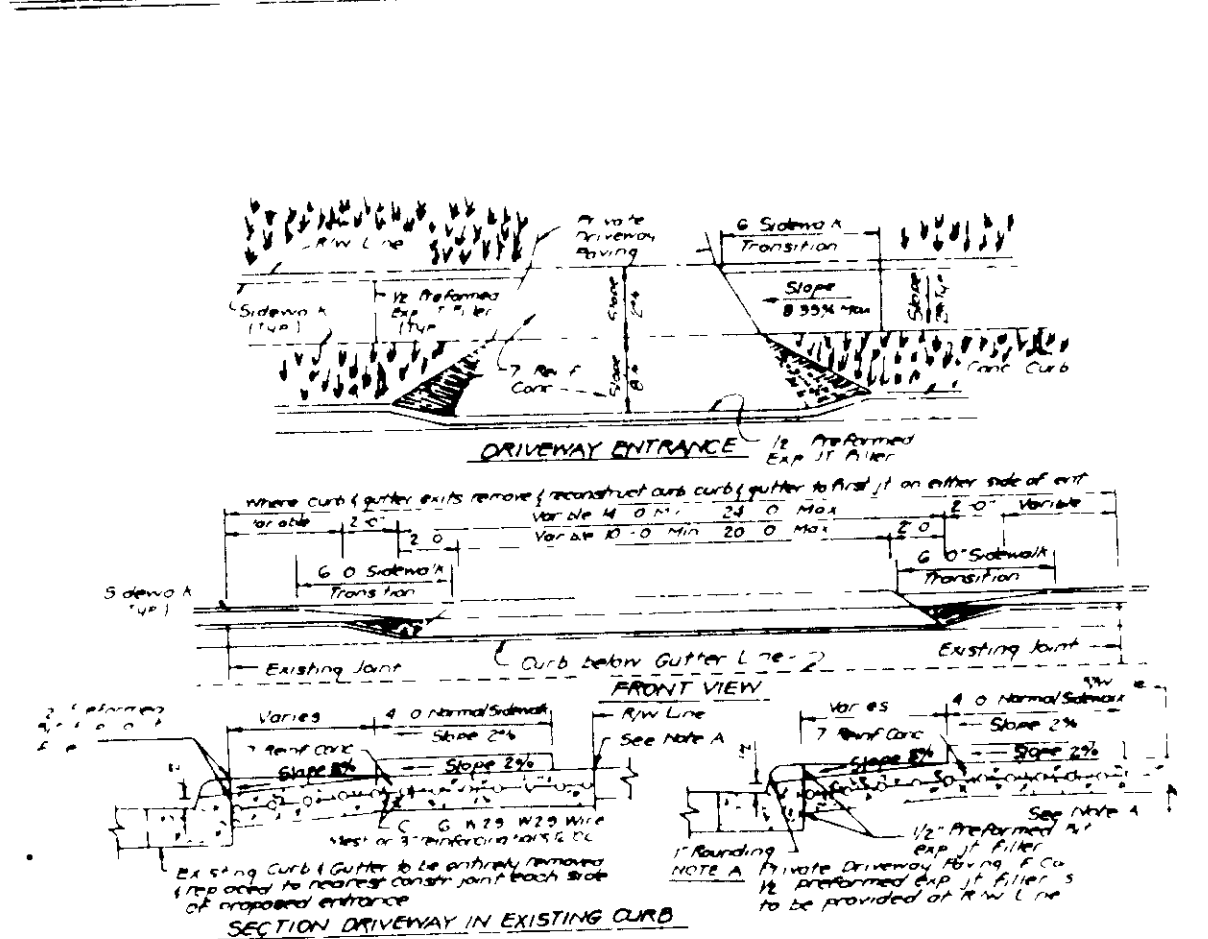 R/W Line
Private
Driveway
Paving
6 Sidewalk
Transition
Sidewalk
(Typ)
1/2 Preformed
Exp JT Filler
(Typ
Slope
2%
Slope
8.33% Max
Slope
Conc Curb
7 Reinf
Conc
Slope
8%
DRIVEWAY ENTRANCE
1/2 Preformed
Exp JT Filler
Where curb & gutter exits remove & reconstruct curb curb & gutter to first jt on either side of ent
Variable
2-0"
Variable 14 0 Min 24 0 Max
2-0"
Variable
2 0
Variable 10-0 Min 20 0 Max
2'0
6 0 Sidewalk
Transition
6 0" Sidewalk
Transition
Sidewalk
Typ)
Existing Joint
Curb below Gutter Line
Existing Joint
FRONT VIEW
Varies
4 0 Normal Sidewalk
Slope 2%
R/W Line
7 Reinf Conc
See Note A
Slope 8%
Slope 2%
6 W29 W29 Wire
Mesh or 3" reinforcing bars
Existing Curb & Gutter to be entirely removed
& replaced to nearest constr joint each side
of proposed entrance
SECTION DRIVEWAY IN EXISTING CURB
Varies
4 0 Normal Sidewalk
Slope 2%
7 Reinf Conc
Slope 8%
Slope 2%
See Note A
1/2" Preformed
exp jt filler
1" Rounding
NOTE A Private Driveway Paving
1/2 preformed exp jt filler
to be provided at R/W Line